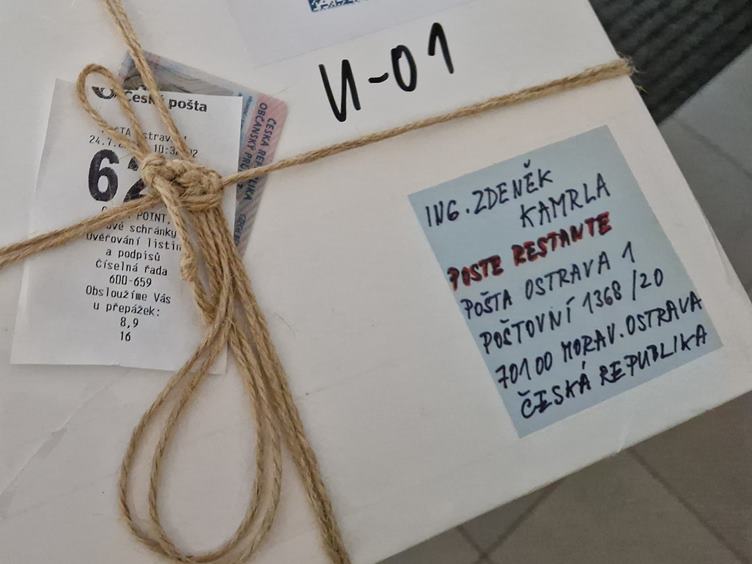 И-01
Česká pošta
24.7.
62
POINT
Ověrování listin
a podpisů
Číselná řada
600-659
Obsloužíme Vás
u přepážek:
8,9
16
ČESKÁ REPUBLIKA
OBČANSKÝ
ING. ZDENĚK
KAMRLA
POSTE RESTANTE
POŠTA OSTRAVA 1
POŠTOVNÍ 1368/20
70100 MORAV. OSTRAVA
ČESKÁ REPUBLIKA